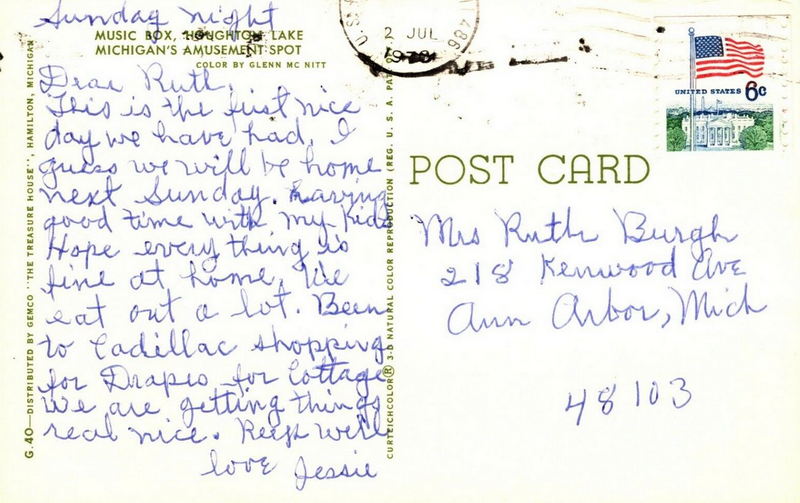 Sunday night
MUSIC BOX, HOUGHTON LAKE
MICHIGAN'S AMUSEMENT SPOT
COLOR BY GLENN MC NITT
Dear Ruth,
This is the first nice
day we have had. I
guess we will be home
next Sunday. Having
good time with my Kids
Hope every thing is
fine at home. We
eat out a lot. Been
to Cadillac shopping
for Drapes for Cottage
we are getting things
real nice. Keep well
love Jessie
G.40—DISTRIBUTED BY GEMCO "THE TREASURE HOUSE", HAMILTON, MICHIGAN
CURTEICHCOLOR® 3-D NATURAL COLOR REPRODUCTION (REG. U.S.A. PAT.
2 JUL
486
UNITED STATES 6c
POST CARD
Mrs Ruth Burgh
218 Kenwood Ave
Ann Arbor, Mich
48103